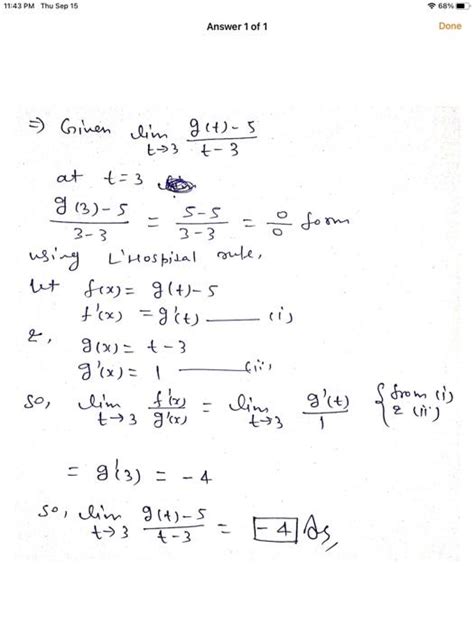 11:43 PM Thu Sep 15
68%
Answer 1 of 1
Done
⇒ Given lim t→3 g(t)-5 / t-3
at t=3
g(3)-5 / 3-3 = 5-5 / 3-3 = 0/0 form
using L'Hospital rule,
let f(x) = g(t)-5
f'(x) = g'(t) —— (i)
&,
g(x) = t-3
g'(x) = 1 —— (ii)
so, lim t→3 f'(x) / g'(x) = lim t→3 g'(t) / 1 { from (i) & (ii)
= g'(3) = -4
so, lim t→3 g(t)-5 / t-3 = -4 Ans,